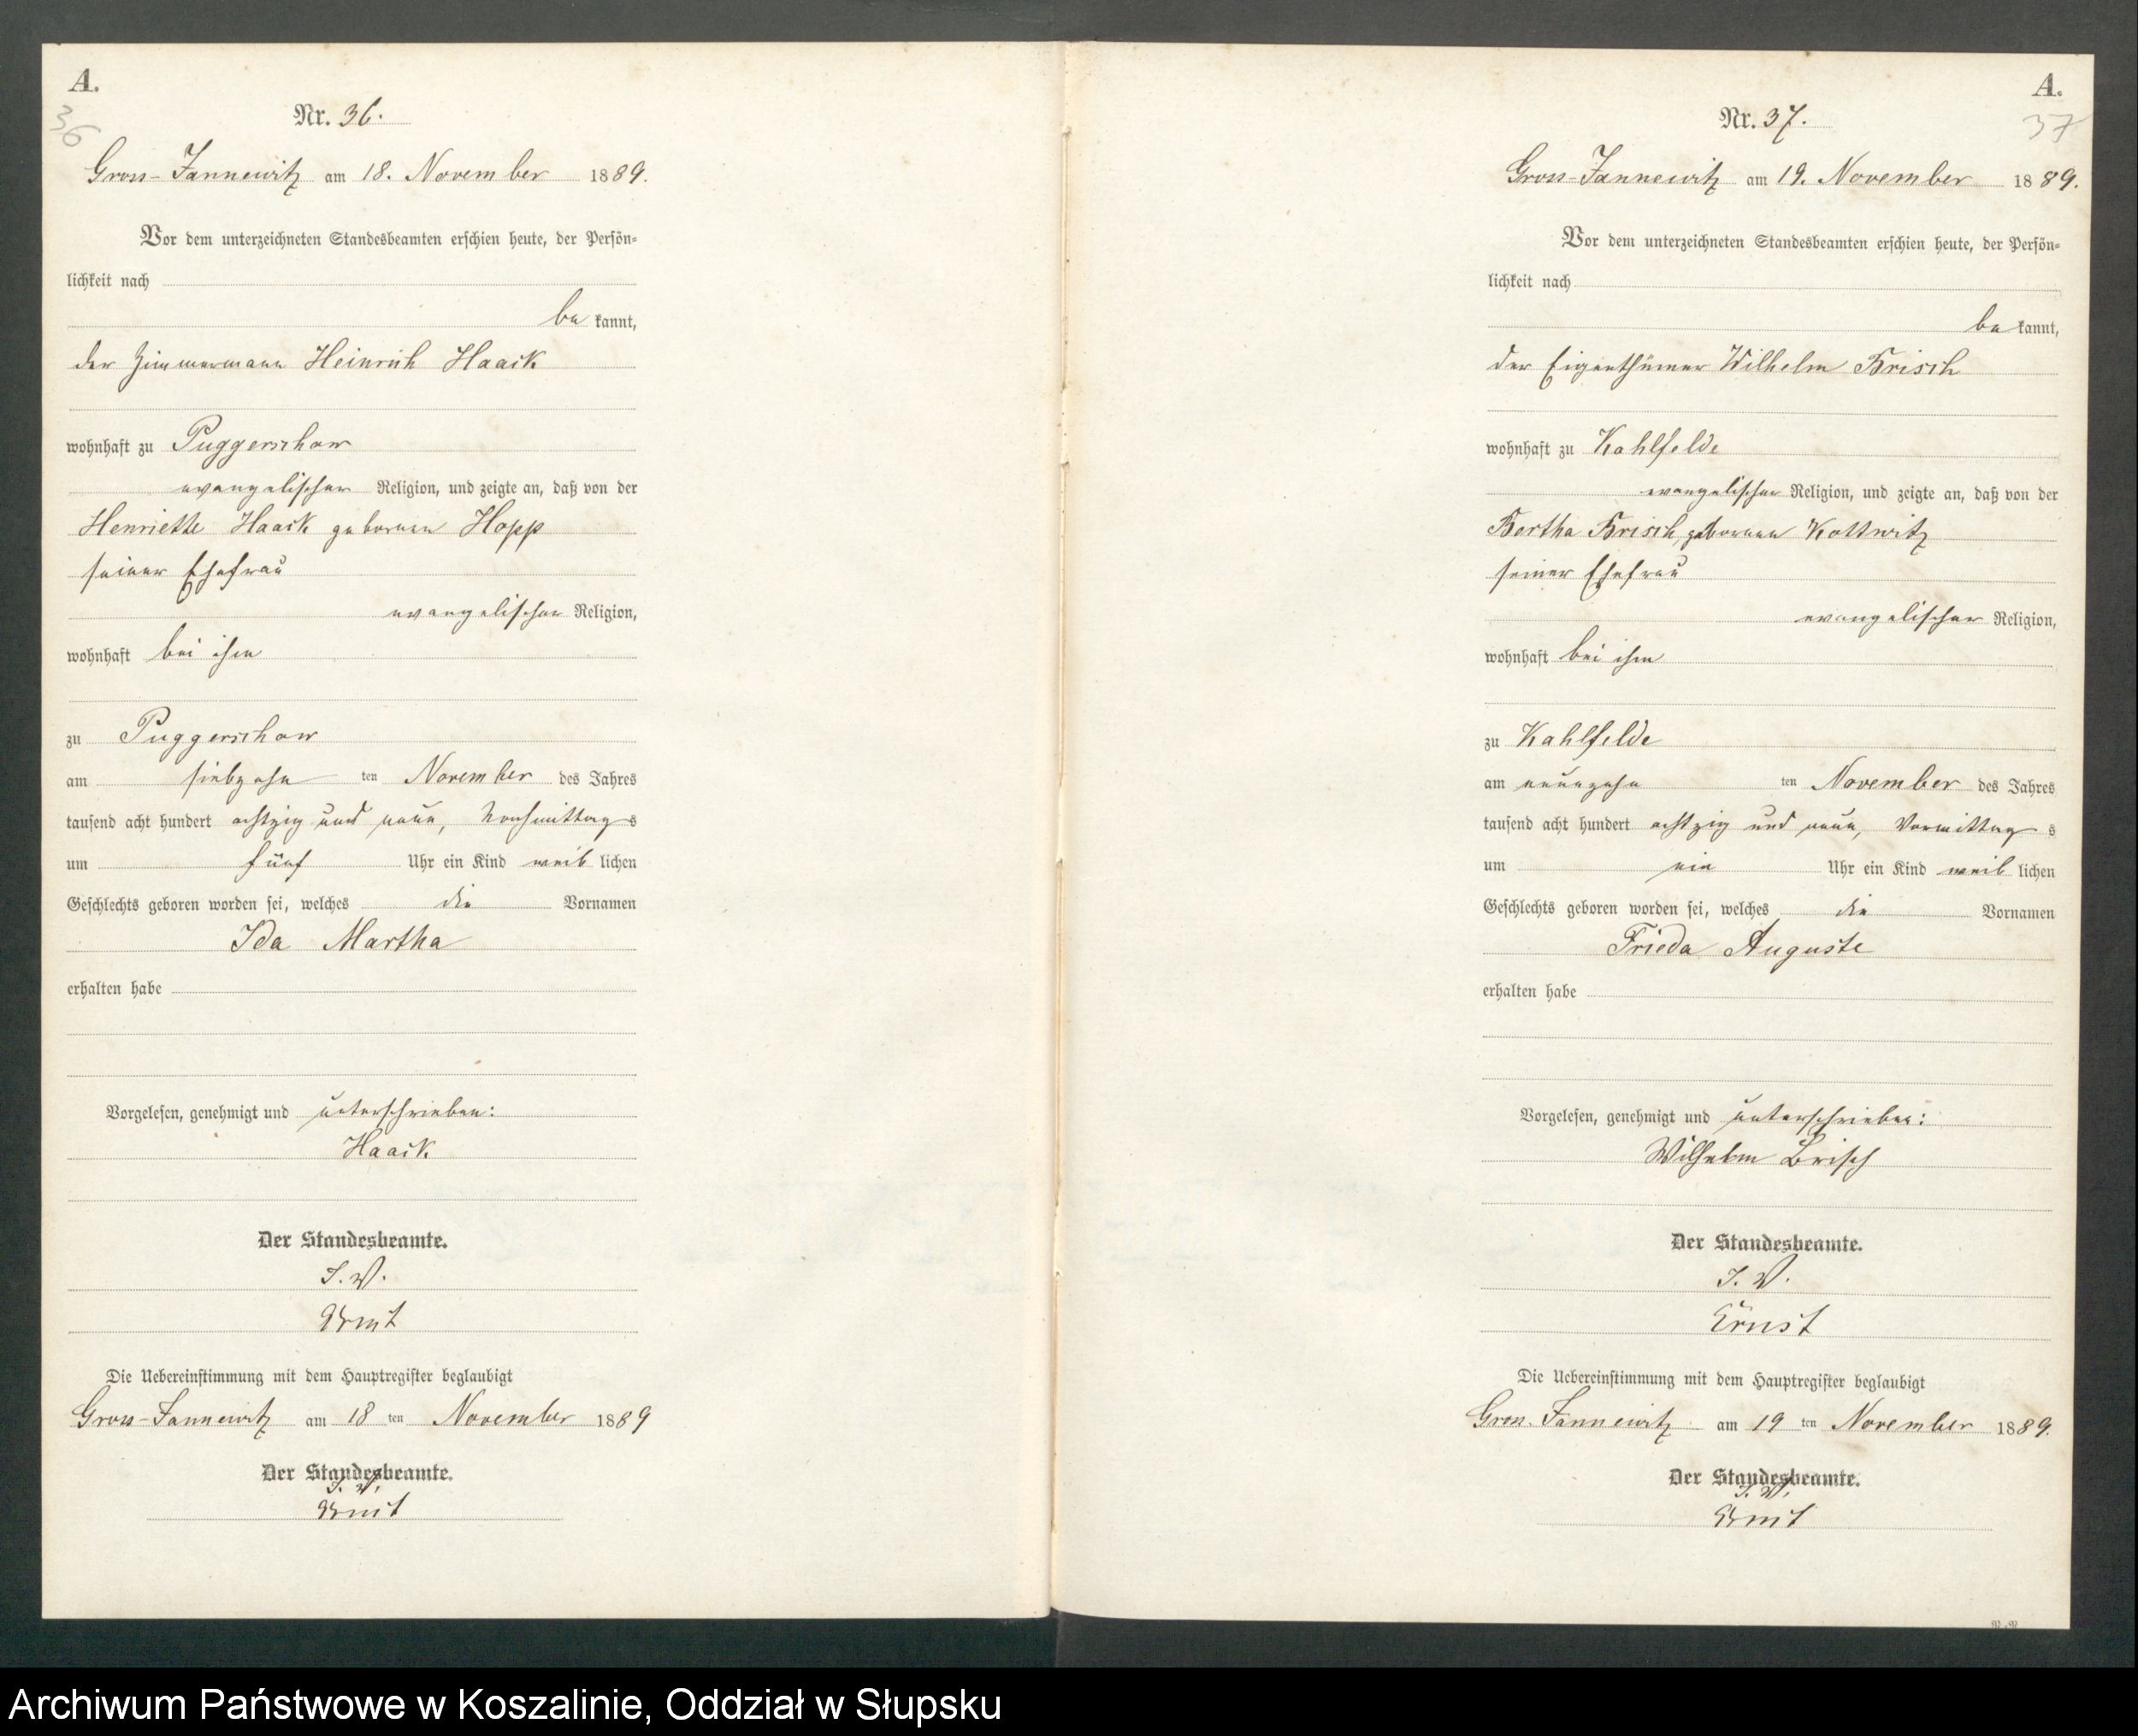 A.
36
Nr. 36.
Gross-Jannewitz am 18. November 1889.
Vor dem unterzeichneten Standesbeamten erschien heute, der Persön-
lichkeit nach
be kannt,
der Zimmermann Heinrich Haack
wohnhaft zu Puggerschow
evangelischer Religion, und zeigte an, daß von der
Henriette Haack geborenen Hopp
seiner Ehefrau
evangelischer Religion,
wohnhaft bei ihm
zu Puggerschow
am siebzehn ten November des Jahres
tausend acht hundert achtzig und neun, Nachmittag s
um fünf Uhr ein Kind weib lichen
Geschlechts geboren worden sei, welches die Vornamen
Ida Martha
erhalten habe
Vorgelesen, genehmigt und unterschrieben:
Haack
Der Standesbeamte.
I. V.
Ernst
Die Uebereinstimmung mit dem Hauptregister beglaubigt
Gross-Jannewitz am 18 ten November 1889
Der Standesbeamte.
I. V.
Ernst
A.
37
Nr. 37.
Gross-Jannewitz am 19. November 1889.
Vor dem unterzeichneten Standesbeamten erschien heute, der Persön-
lichkeit nach
be kannt,
der Eigenthümer Wilhelm Brisch
wohnhaft zu Kahlfelde
evangelischer Religion, und zeigte an, daß von der
Bertha Brisch, geborenen Kottwitz
seiner Ehefrau
evangelischer Religion,
wohnhaft bei ihm
zu Kahlfelde
am neunzehn ten November des Jahres
tausend acht hundert achtzig und neun, Vormittag s
um ein Uhr ein Kind weib lichen
Geschlechts geboren worden sei, welches die Vornamen
Frieda Auguste
erhalten habe
Vorgelesen, genehmigt und unterschrieben:
Wilhelm Brisch
Der Standesbeamte.
I. V.
Ernst
Die Uebereinstimmung mit dem Hauptregister beglaubigt
Gross-Jannewitz am 19 ten November 1889.
Der Standesbeamte.
I. V.
Ernst
Archiwum Państwowe w Koszalinie, Oddział w Słupsku